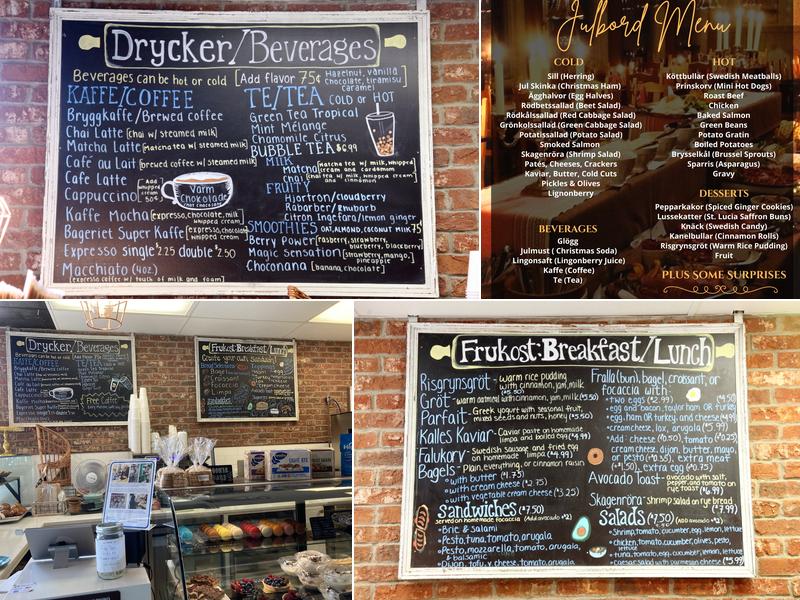 Drycker/Beverages
Beverages can be hot or cold [Add flavor 75¢ Hazelnut, vanilla
chocolate, tiramisu
caramel]
KAFFE/COFFEE
Bryggkaffe/Brewed coffee
Chai Latte [chai w/ steamed milk]
Matcha Latte [matcha tea w/ steamed milk]
Café au Lait [brewed coffee w/ steamed milk]
Café Latte
Cappuccino
[Add
whipped
cream
50¢]
Varm
Chokolade
/hot chocolate
Kaffe Mocha [expresso, chocolate, milk
whipped cream]
Bageriet Super Kaffe [expresso, chocolate
whipped cream]
Expresso single $2.25 double $2.50
Macchiato (4oz.)
[expresso coffee w/ touch of milk and foam]
TE/TEA COLD or HOT
Green Tea Tropical
Mint Mélange
Chamomile Citrus
BUBBLE TEA $6.99
MILK
Matcha [matcha tea w/ milk, whipped
cream and cardamom
Chai [chai tea w/ milk, whipped cream
and cinnamon
FRUITY
Hjortron/cloudberry
Rabarber/Rhubarb
Citron Ingefära/lemon ginger
SMOOTHIES OAT, ALMOND, COCONUT MILK 75¢
Berry Power [rasberry, strawberry,
blueberry, blackberry]
Magic sensation [strawberry, mango,
pineapple
Choconana [banana, chocolate]
Julbord Menu
COLD
Sill (Herring)
Jul Skinka (Christmas Ham)
Ägghalvor (Egg Halves)
Rödbetssallad (Beet Salad)
Rödkålssallad (Red Cabbage Salad)
Grönkolssallad (Green Cabbage Salad)
Potatissallad (Potato Salad)
Smoked Salmon
Skagenröra (Shrimp Salad)
Patés, Cheeses, Crackers
Kaviar, Butter, Cold Cuts
Pickles & Olives
Lignonberry
BEVERAGES
Glögg
Julmust ( Christmas Soda)
Lingonsaft (Lingonberry Juice)
Kaffe (Coffee)
Te (Tea)
HOT
Köttbullär (Swedish Meatballs)
Prinskorv (Mini Hot Dogs)
Roast Beef
Chicken
Baked Salmon
Green Beans
Potato Gratin
Boiled Potatoes
Brysselkål (Brussel Sprouts)
Sparris (Asparagus)
Gravy
DESSERTS
Pepparkakor (Spiced Ginger Cookies)
Lussekatter (St. Lucia Saffron Buns)
Knäck (Swedish Candy)
Kanelbullar (Cinnamon Rolls)
Risgrynsgröt (Warm Rice Pudding)
Fruit
PLUS SOME SURPRISES
Drycker/Beverages
Beverages can be hot or cold
KAFFE/COFFEE
TE/TEA
Free Coffee
Frukost:Breakfast/Lunch
Create your own Sandwich!
Bagel
Croissant
Focaccia
Limpa
Frukost:Breakfast/Lunch
Risgrynsgröt - warm rice pudding
with cinnamon, jam, milk
($5.50)
Gröt - warm oatmeal with cinnamon, jam, milk ($5.50)
Parfait - Greek yogurt with seasonal fruit,
mixed seeds and nuts, honey ($5.50)
Kalles Kaviar - Caviar paste on homemade
limpa and boiled egg ($4.99)
Falukorv - Swedish Sausage and fried egg
on homemade limpa ($4.99)
Bagels - Plain, everything, or cinnamon raisin
with butter ($1.75)
with cream cheese ($2.75)
with vegetable cream cheese ($3.25)
Sandwiches ($7.50)
served on homemade focaccia (Add avocado +$2)
• Brie & salami
• Pesto, tuna, tomato, arugula
• Pesto, mozzarella, tomato, arugula,
& balsamic
• Dijon, tofu, v. cheese, tomato, arugula
Fralla (bun), bagel, croissant, or
focaccia with-
• two eggs ($2.99)
• egg and bacon, taylor ham OR turkey ($4.50)
• egg, ham OR turkey, and cheese ($4.99)
• creamcheese, lox, arugula ($5.99)
• Add: cheese ($0.50), tomato ($0.25)
cream cheese, dijon, butter, mayo,
or pesto (+$0.35), extra meat
(+$1.50), extra egg ($0.75)
Avocado Toast - avocado with salt,
pepper, and tomato on
rye toast ($6.99)
Skagenröra - shrimp salad on rye bread
($7.99)
Salads ($7.50) (ADD avocado +$2)
• Shrimp, tomato, cucumber, egg, lemon, lettuce
• chicken, tomato, cucumber, olives, pesto,
lettuce
• tuna, tomato, egg, cucumber, lemon, lettuce
• caesar salad with parmesan cheese